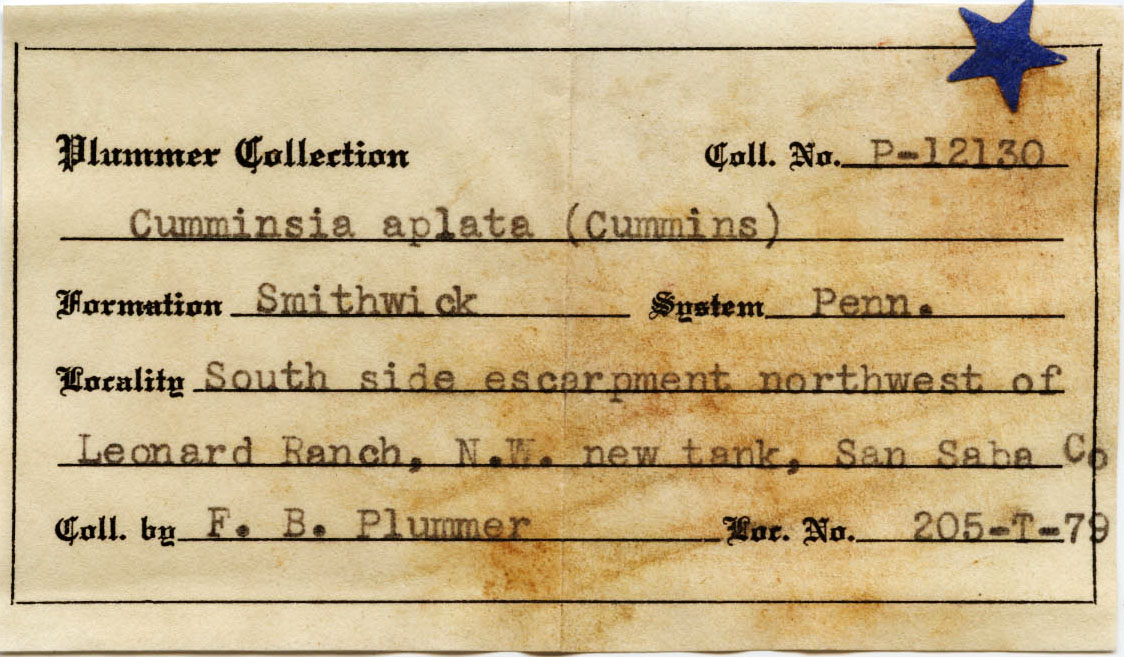 Plummer Collection Coll. No. P-12130
Cumminsia aplata (Cummins)
Formation Smithwick System Penn.
Locality South side escarpment northwest of
Leonard Ranch, N.W. new tank, San Saba Co
Coll. by F. B. Plummer Loc. No. 205-T-79